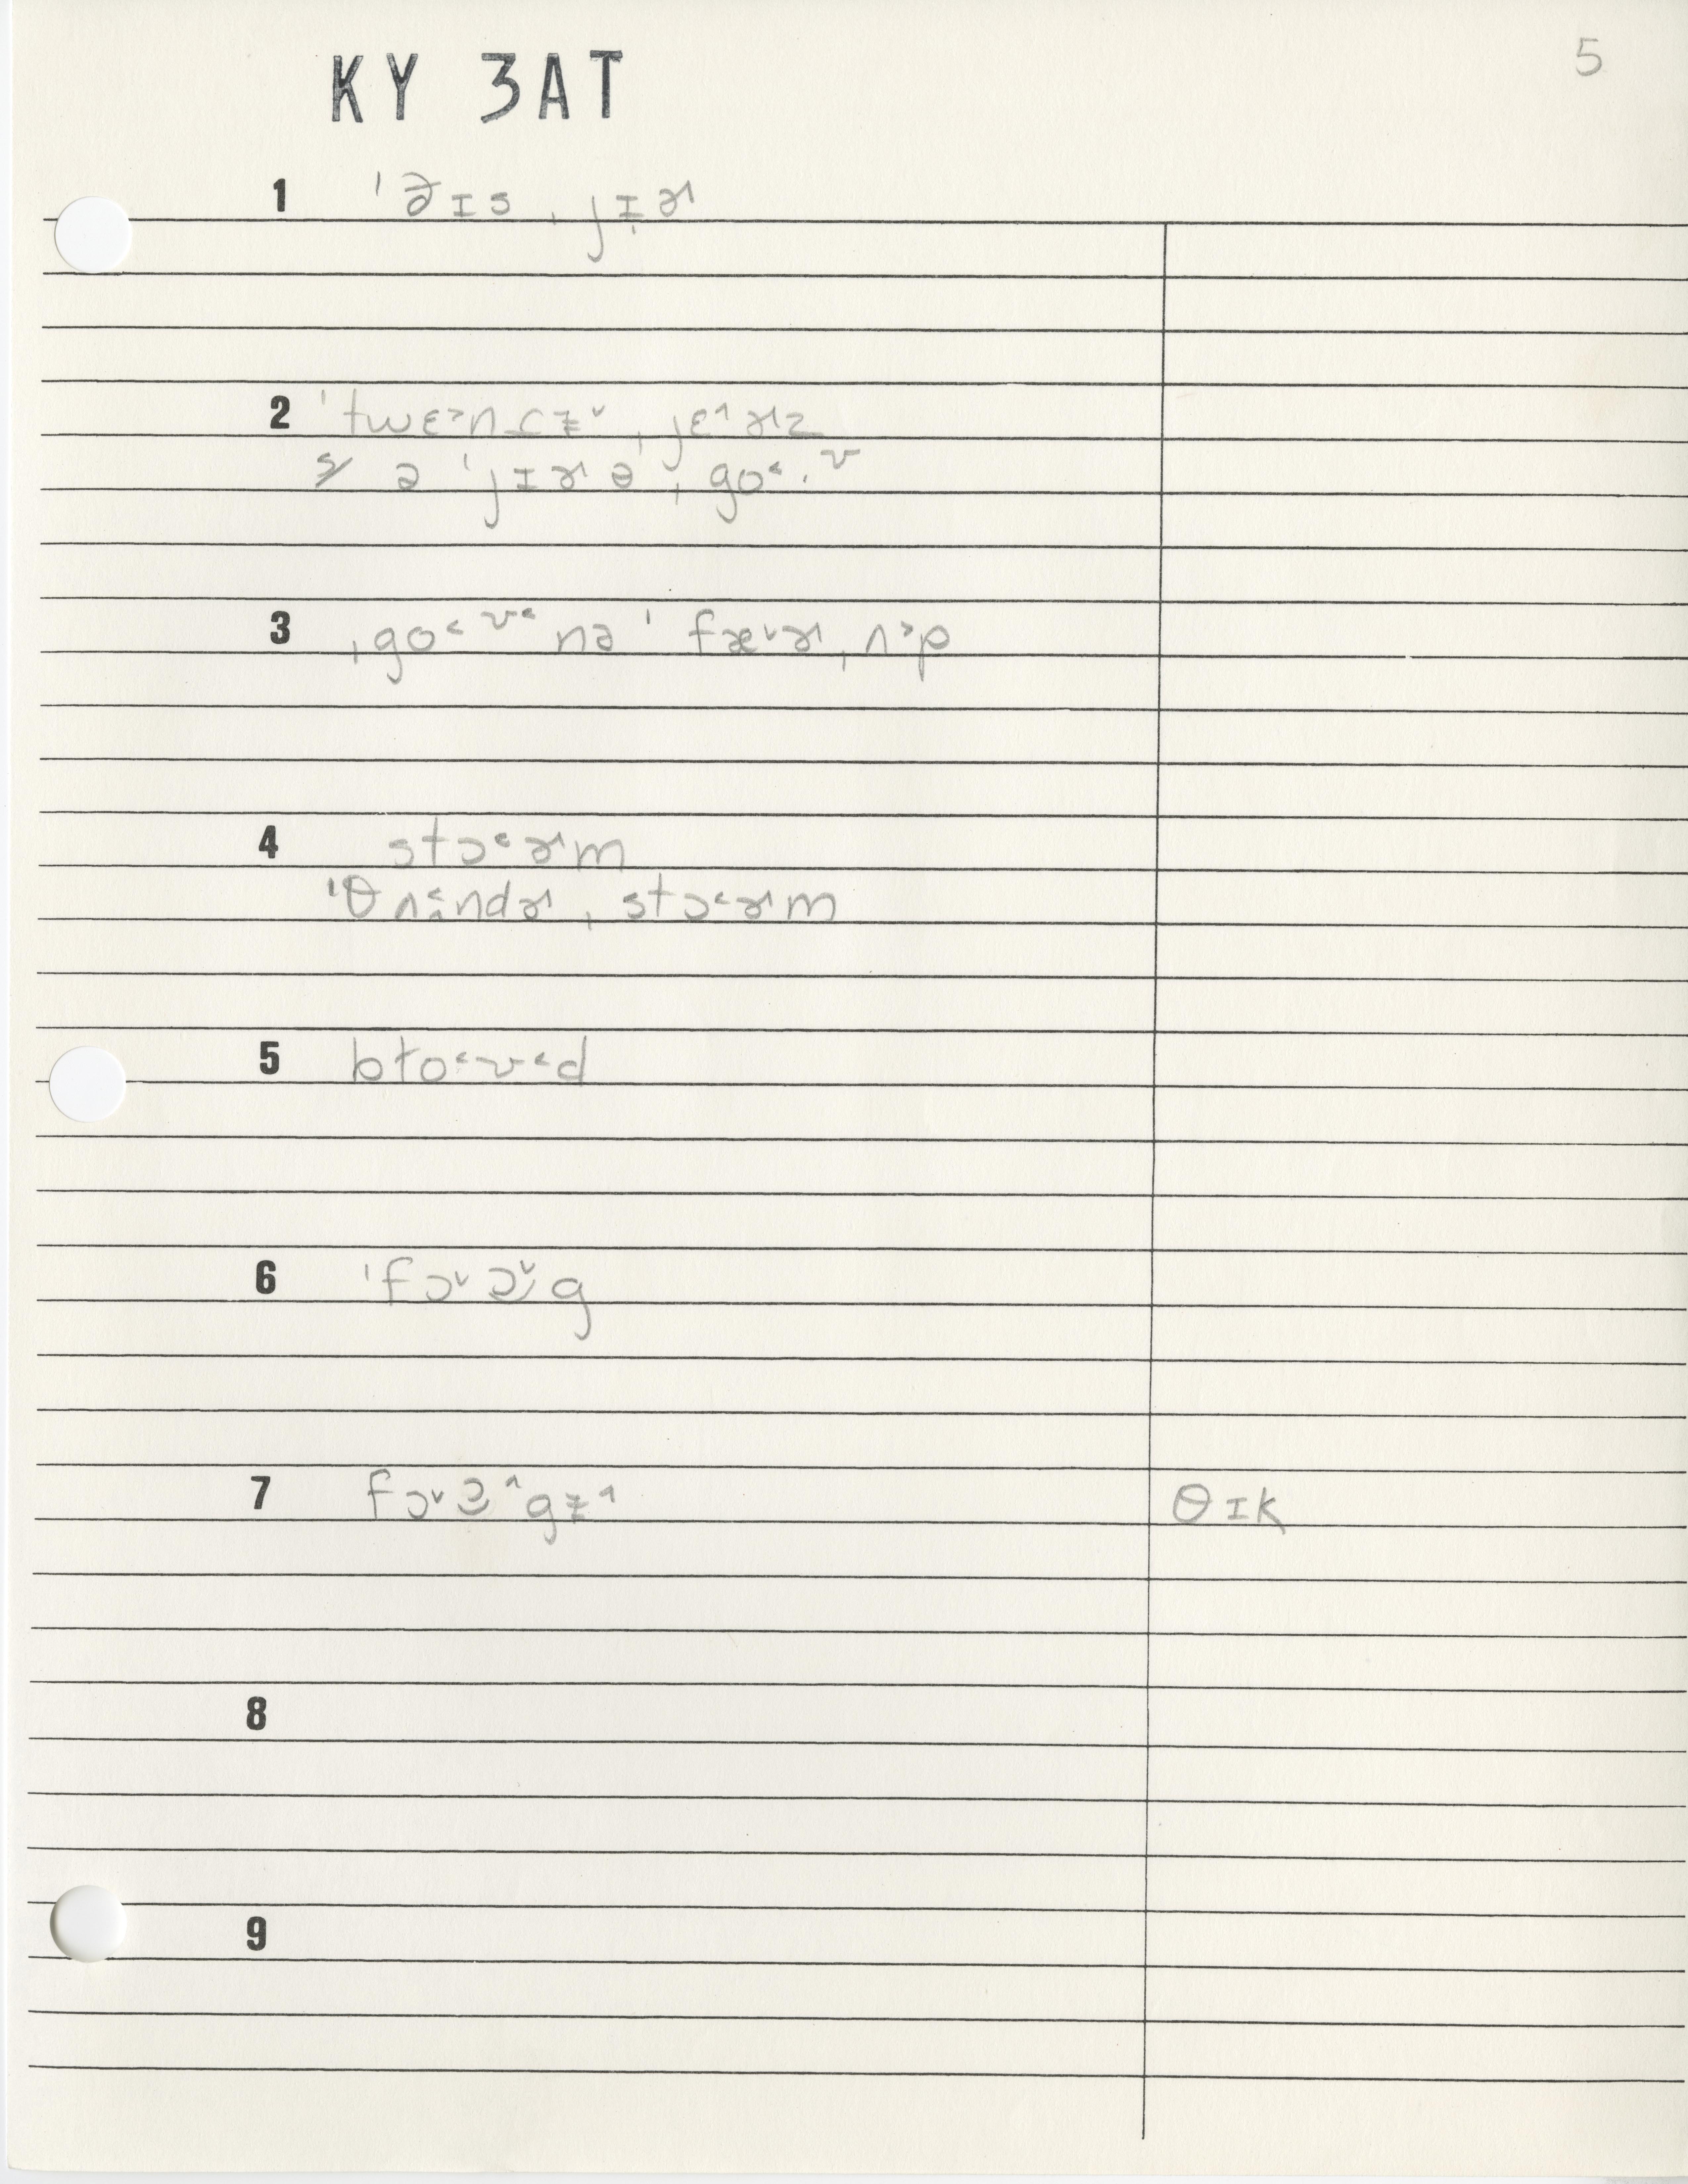 KY 3AT
5
1 ˈðɪs ˌjɪ̣ɚ
2 ˈtwɛ˃nɾɨ˅ ˌjɛ˄ɚz
ə ˈjɪɚ ə ˌgo˂·ʊ
3 ˌgo˂ʊ˂nə ˈfæ˅ɚ ˌʌ˃p
4 stɔ˂ɚm
ˈθʌ˂ndɚ ˌstɔ˂ɚm
5 bɫo˂ʊ˂d
6 ˈfɔ˅ɔ̯˅g
7 fɔ˅ɔ̯˄gɨ˄ θɪk
8
9